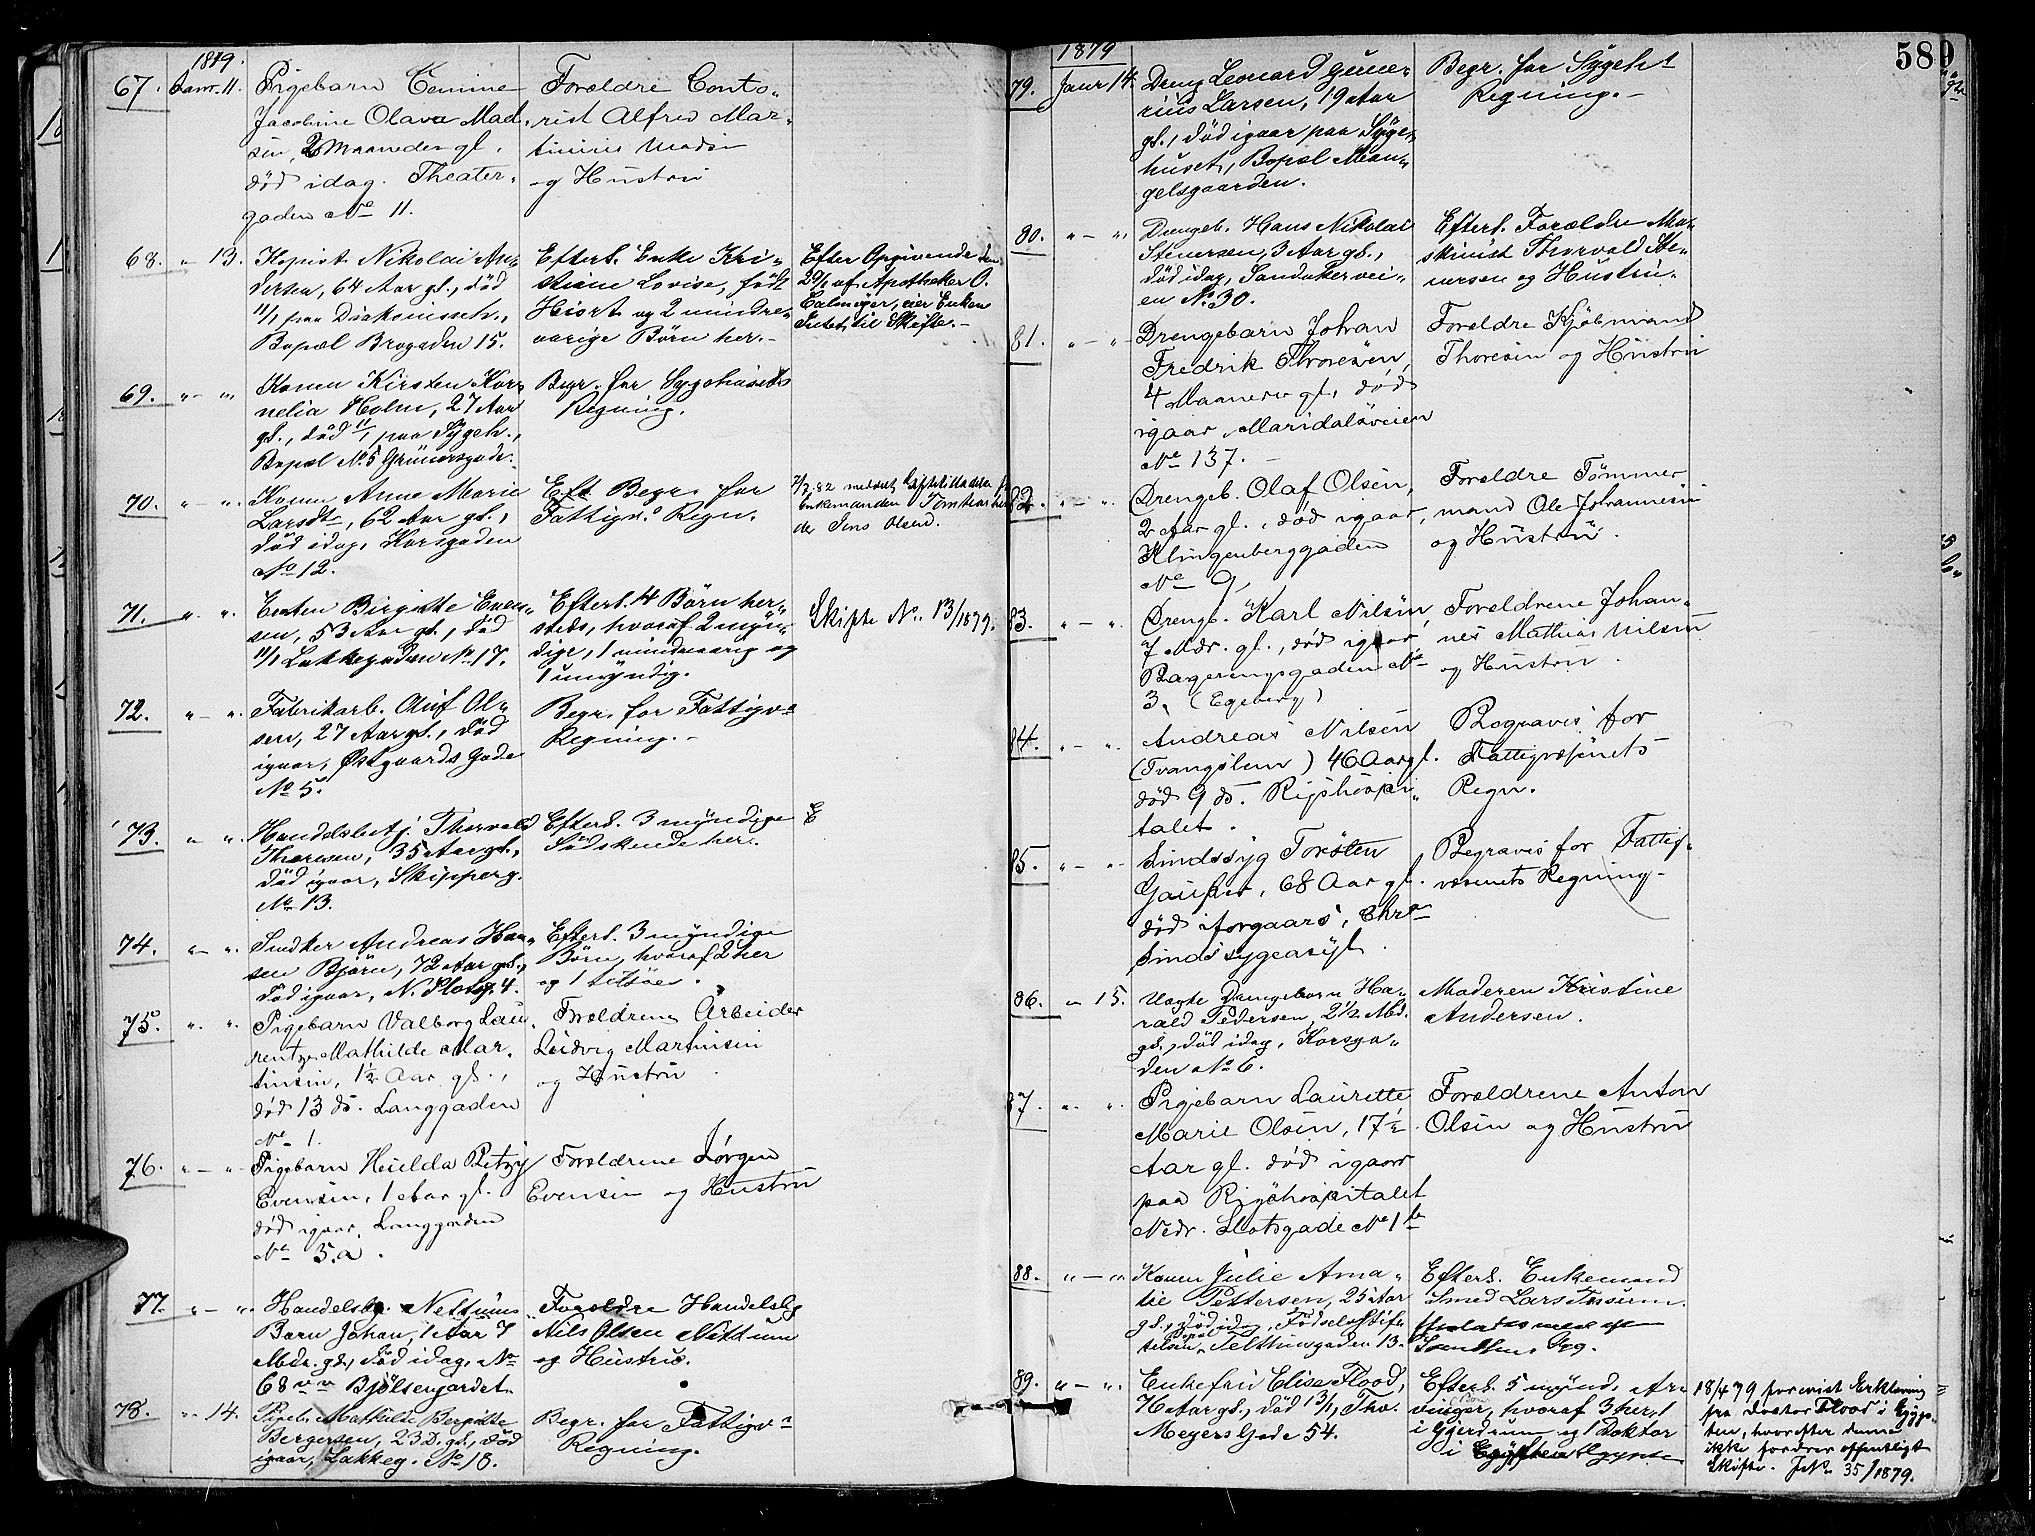 1879.
67. Janr. 11. Pigebarn Temine Forældre Conto-
Jacobine Olava Mad- rist Alfred Mar-
sen, 2 Maaneder gl. tinius Madsen
død idag. Theater- og Hustru
gaden No 11.
68. " 13. Kopist Nikolai An- Efterl. Enke Kri- Efter Opgivende den
dersen, 64 Aar gl., død stiane Lovise, født af Apotheker O.
11/1 paa Diakonisseh., Hiort og 2 mindre- eier Enken
Bopæl Brogaden 15. aarige Børn her.- Intet til Skifte.-
69. " - " Konen Kirsten Kor- Begr. for Sygehusets
nelia Holm, 27 Aar Regning.
gl., død 11/1 paa Sygeh.,
Bopæl No 5 Grünersgade.
70. " - " Konen Anne Marie Begr. for 7/2 82 meddelt Skifteattest
Larsdtr, 62 Aar gl., Fattigv. Regn. Enkemanden
død idag, Korsgaden Jens Olsen.
No 12.
71. " " Enken Birgitte Even- Efterl. 4 Børn her- Skifte No. 13/1879.
sen, 53 Aar gl., død steds, hvoraf 2 myn-
11/1 Lakkegaden No 17. dige, 1 mindreaarig og
1 umyndig.
72. " - " Fabrikarb. Oluf Ol- Begr. for Fattigv.
sen, 27 Aar gl., død Regning.-
igaar, Østgaards Gade
No 5.
73. " " Handelsbetj. Thorvald Efterl. 3 myndige E
Thoresen, 35 Aar gl., Sødskende her.
død igaar, Skipperg.
No 13.
74. " - " Snedker Andreas Han- Efterl. 3 myndige
sen Bjørn, 72 Aar gl., Børn, hvoraf 2 her
død igaar, N. Slotsg. 4. og 1 tilsøes.
75. " " Pigebarn Valborg Lau- Forældrene Arbeider
rentze Mathilde Mar- Ludvig Martinsen
tinsen, 1½ Aar gl., og Hustru.
død 13 ds. Langgaden
No 1.
76. " - " Pigebarn Hulda Betzy Forældrene Jørgen
Evensen, 1 Aar gl. Evensen og Hustru
død igaar, Langgaden
No 5.a.
77. " - " Handelsb. Nettums Forældre Handelsb.
Barn Johan, 1 Aar 7 Nils Olsen Nettum
Mdr. gl., død idag, No og Hustru.
68 Bjølsenjordet.
78. " 14. Pigeb. Mathilde Bergitte Begr. for Fattigv.
Bergersen, 23 D. gl., død Regning.
igaar, Lakkeg. No 18.
580
1879
79. Janr 14. Dreng Leonard Gune- Begr. for Sygehs
rius Larsen, 19 Aar Regning.-
gl., død igaar paa Syge-
huset, Bopæl Man-
gelsgaarden.
80. " - " Drengeb. Hans Nikolai Efterl. Forældre Ma-
Stenersen, 3 Aar gl., skinist Thorvald Ste-
død idag, Sandakervei- nersen og Hustru.
en No 30.
81. " - " Drengebarn Johan Forældre Kjøbmand
Fredrik Thoresen, Thoresen og Hustru
4 Maaneder gl. død
igaar, Maridalsveien
No 137.-
82. " - " Drengeb. Olaf Olsen, Forældre Tømmer
2 Aar gl., død igaar, mand Ole Johannesen
Klingenberggaden og Hustru.
No 9,
83. " - " Drengb. Karl Nilsen, Forældrene Johan-
7 Mdr. gl., død igaar, nes Mathias Nilsen
Rageringsgaden No og Hustru.
3. (Egeberg)
84. " - " Andreas Nilsen Begraves for
(Tvangslem) 46 Aar gl. Fattigvæsenets
død 9 ds. Rigshospi- Regn.
talet.
85. " - " Sindssyg Torsten Begraves for Fattig-
Gaupes, 68 Aar gl. væsenets Regning-
død iforgaars, Chra
Sindssygeasyl.
86. " 15. Uægte Drengebarn Ha- Moderen Kristine
rald Pedersen, 2½ Md. Andersen.
gl., død idag, Korsga-
den No 6.
87. " " Pigebarn Laurette Forældrene Anton
Marie Olsen, 17½ Olsen og Hustru
Aar gl. død igaar
paa Rigshospitalet
Nedr. Slotsgade No 1b
88. " - " Konen Julie Ama- Efterl. Enkemand
lie Pettersen, 25 Aar Smed Lars
gl., død idag, Fødselsstif-
telsen, Bopæl Telthusgaden 13.
89. " - " Enkefru Elise Flood, Efterl. 5 mynd. Ar- 18/4 79 forevist Erklæring
76 Aar gl., død 13/1, Thv. vinger, hvoraf 3 her, 1 fra Doctor Flood i Egyp-
Meyers Gade 54. i Gjerdrum og 1 Doktor ten, hvorefter denne
i Egypten ikke fordrer offentligt
Skifte. JNo 35/1879.